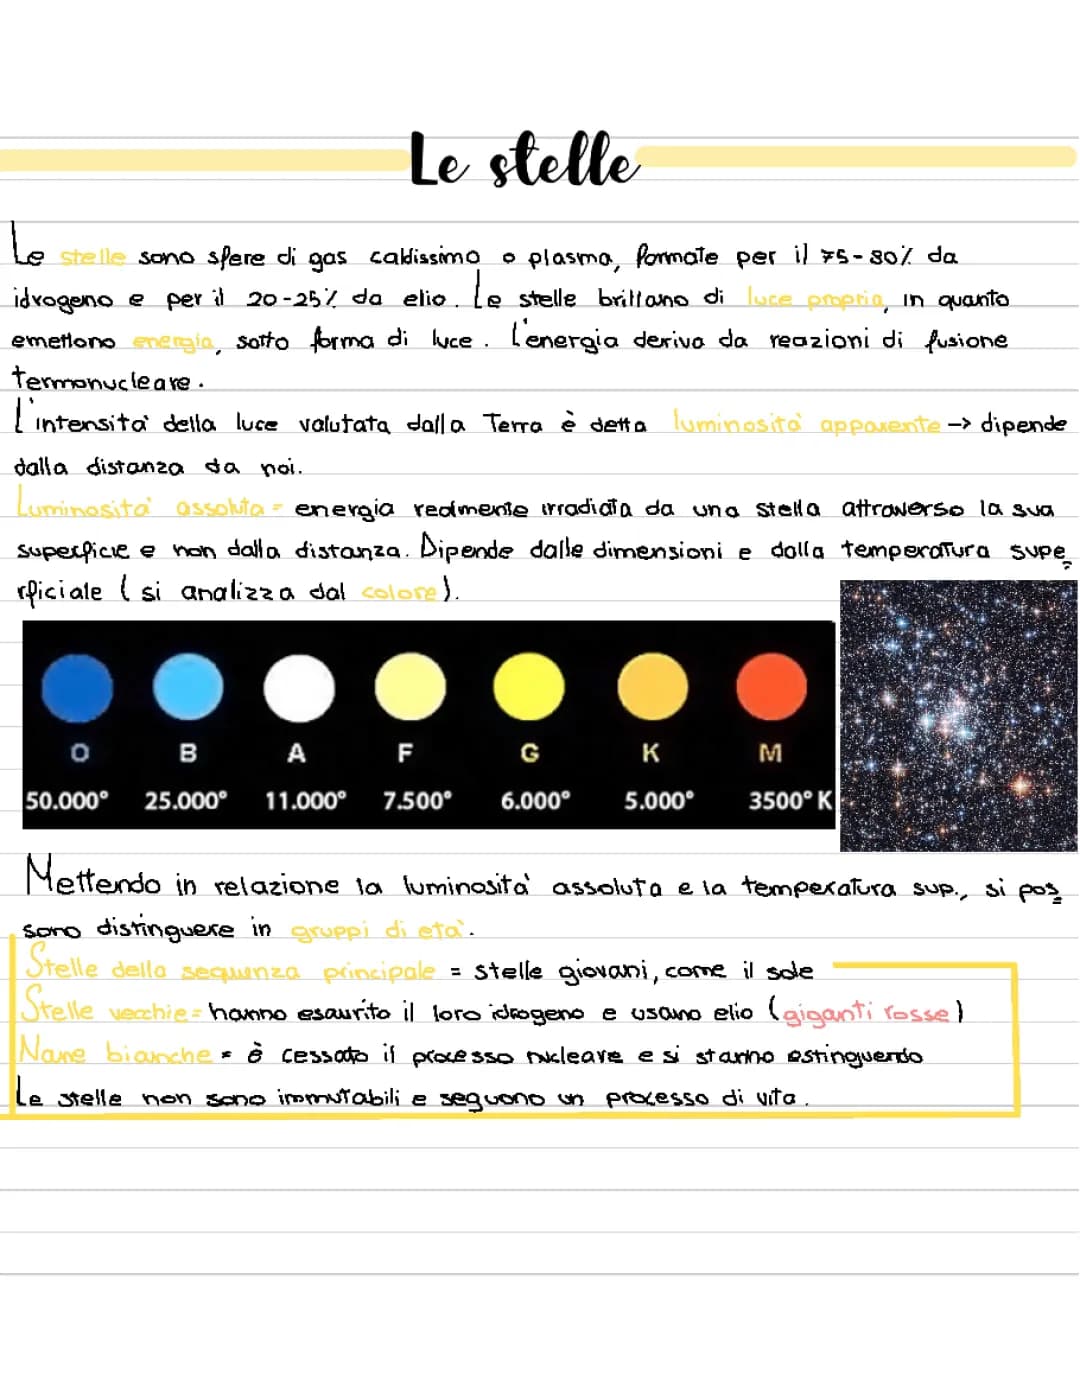 Le stelle
Le stelle sono sfere di gas caldissimo o plasma, formate per il 75-80% da
idrogeno e per il 20-25% da elio. Le stelle brillano di luce propria, in quanto
emettono energia, sotto forma di luce. L'energia deriva da reazioni di fusione
termonucleare.
L'intensità della luce valutata dalla Terra è detta luminosità apparente -> dipende
dalla distanza da noi.
Luminosità assoluta = energia realmente irradiata da una stella attraverso la sua
superficie e non dalla distanza. Dipende dalle dimensioni e dalla temperatura supe
rficiale (si analizza dal colore).
O B A F G K M
50.000° 25.000° 11.000° 7.500° 6.000° 5.000° 3500° K
Mettendo in relazione la luminosità assoluta e la temperatura sup., si pos
sono distinguere in gruppi di età.
Stelle della sequenza principale = stelle giovani, come il sole
Stelle vecchie = hanno esaurito il loro idrogeno e usano elio (giganti rosse)
Nane bianche = è cessato il processo nucleare e si stanno estinguendo
Le stelle non sono immutabili e seguono un processo di vita.